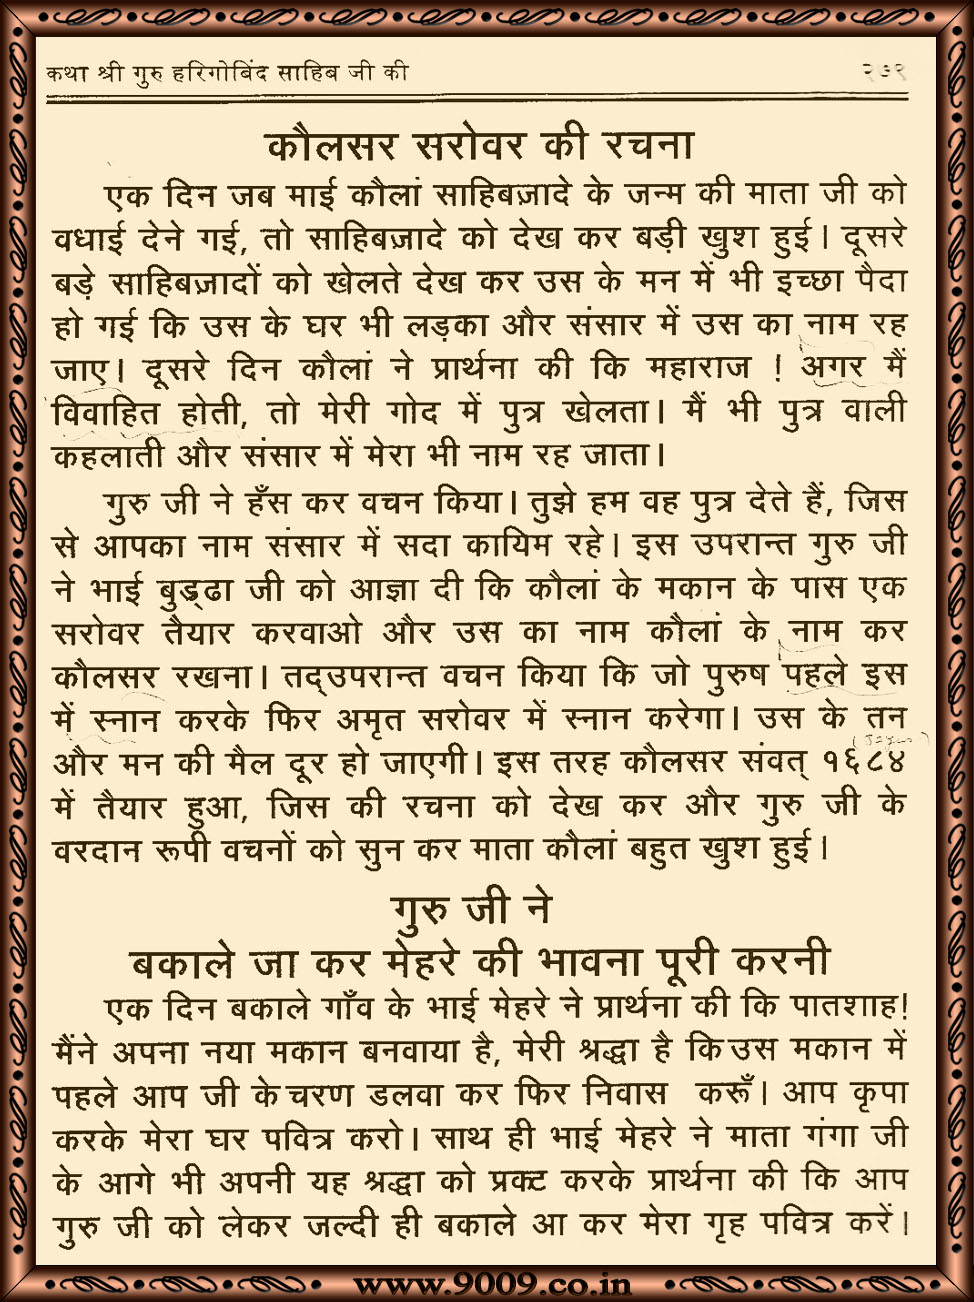 कथा श्री गुरु हरिगोबिंद साहिब जी की २७९
कौलसर सरोवर की रचना
एक दिन जब माई कौलां साहिबज़ादे के जन्म की माता जी को
वधाई देने गई, तो साहिबज़ादे को देख कर बड़ी खुश हुई। दूसरे
बड़े साहिबज़ादों को खेलते देख कर उस के मन में भी इच्छा पैदा
हो गई कि उस के घर भी लड़का और संसार में उस का नाम रह
जाए। दूसरे दिन कौलां ने प्रार्थना की कि महाराज ! अगर मैं
विवाहित होती, तो मेरी गोद में पुत्र खेलता। मैं भी पुत्र वाली
कहलाती और संसार में मेरा भी नाम रह जाता।
गुरु जी ने हँस कर वचन किया। तुझे हम वह पुत्र देते हैं, जिस
से आपका नाम संसार में सदा कायिम रहे। इस उपरान्त गुरु जी
ने भाई बुड्ढा जी को आज्ञा दी कि कौलां के मकान के पास एक
सरोवर तैयार करवाओ और उस का नाम कौलां के नाम कर
कौलसर रखना। तद्उपरान्त वचन किया कि जो पुरुष पहले इस
में स्नान करके फिर अमृत सरोवर में स्नान करेगा। उस के तन
और मन की मैल दूर हो जाएगी। इस तरह कौलसर संवत् १६८४
में तैयार हुआ, जिस की रचना को देख कर और गुरु जी के
वरदान रूपी वचनों को सुन कर माता कौलां बहुत खुश हुई।
गुरु जी ने
बकाले जा कर मेहरे की भावना पूरी करनी
एक दिन बकाले गाँव के भाई मेहरे ने प्रार्थना की कि पातशाह!
मैंने अपना नया मकान बनवाया है, मेरी श्रद्धा है कि उस मकान में
पहले आप जी के चरण डलवा कर फिर निवास करूँ। आप कृपा
करके मेरा घर पवित्र करो। साथ ही भाई मेहरे ने माता गंगा जी
के आगे भी अपनी यह श्रद्धा को प्रक्ट करके प्रार्थना की कि आप
गुरु जी को लेकर जल्दी ही बकाले आ कर मेरा गृह पवित्र करें।
www.9009.co.in